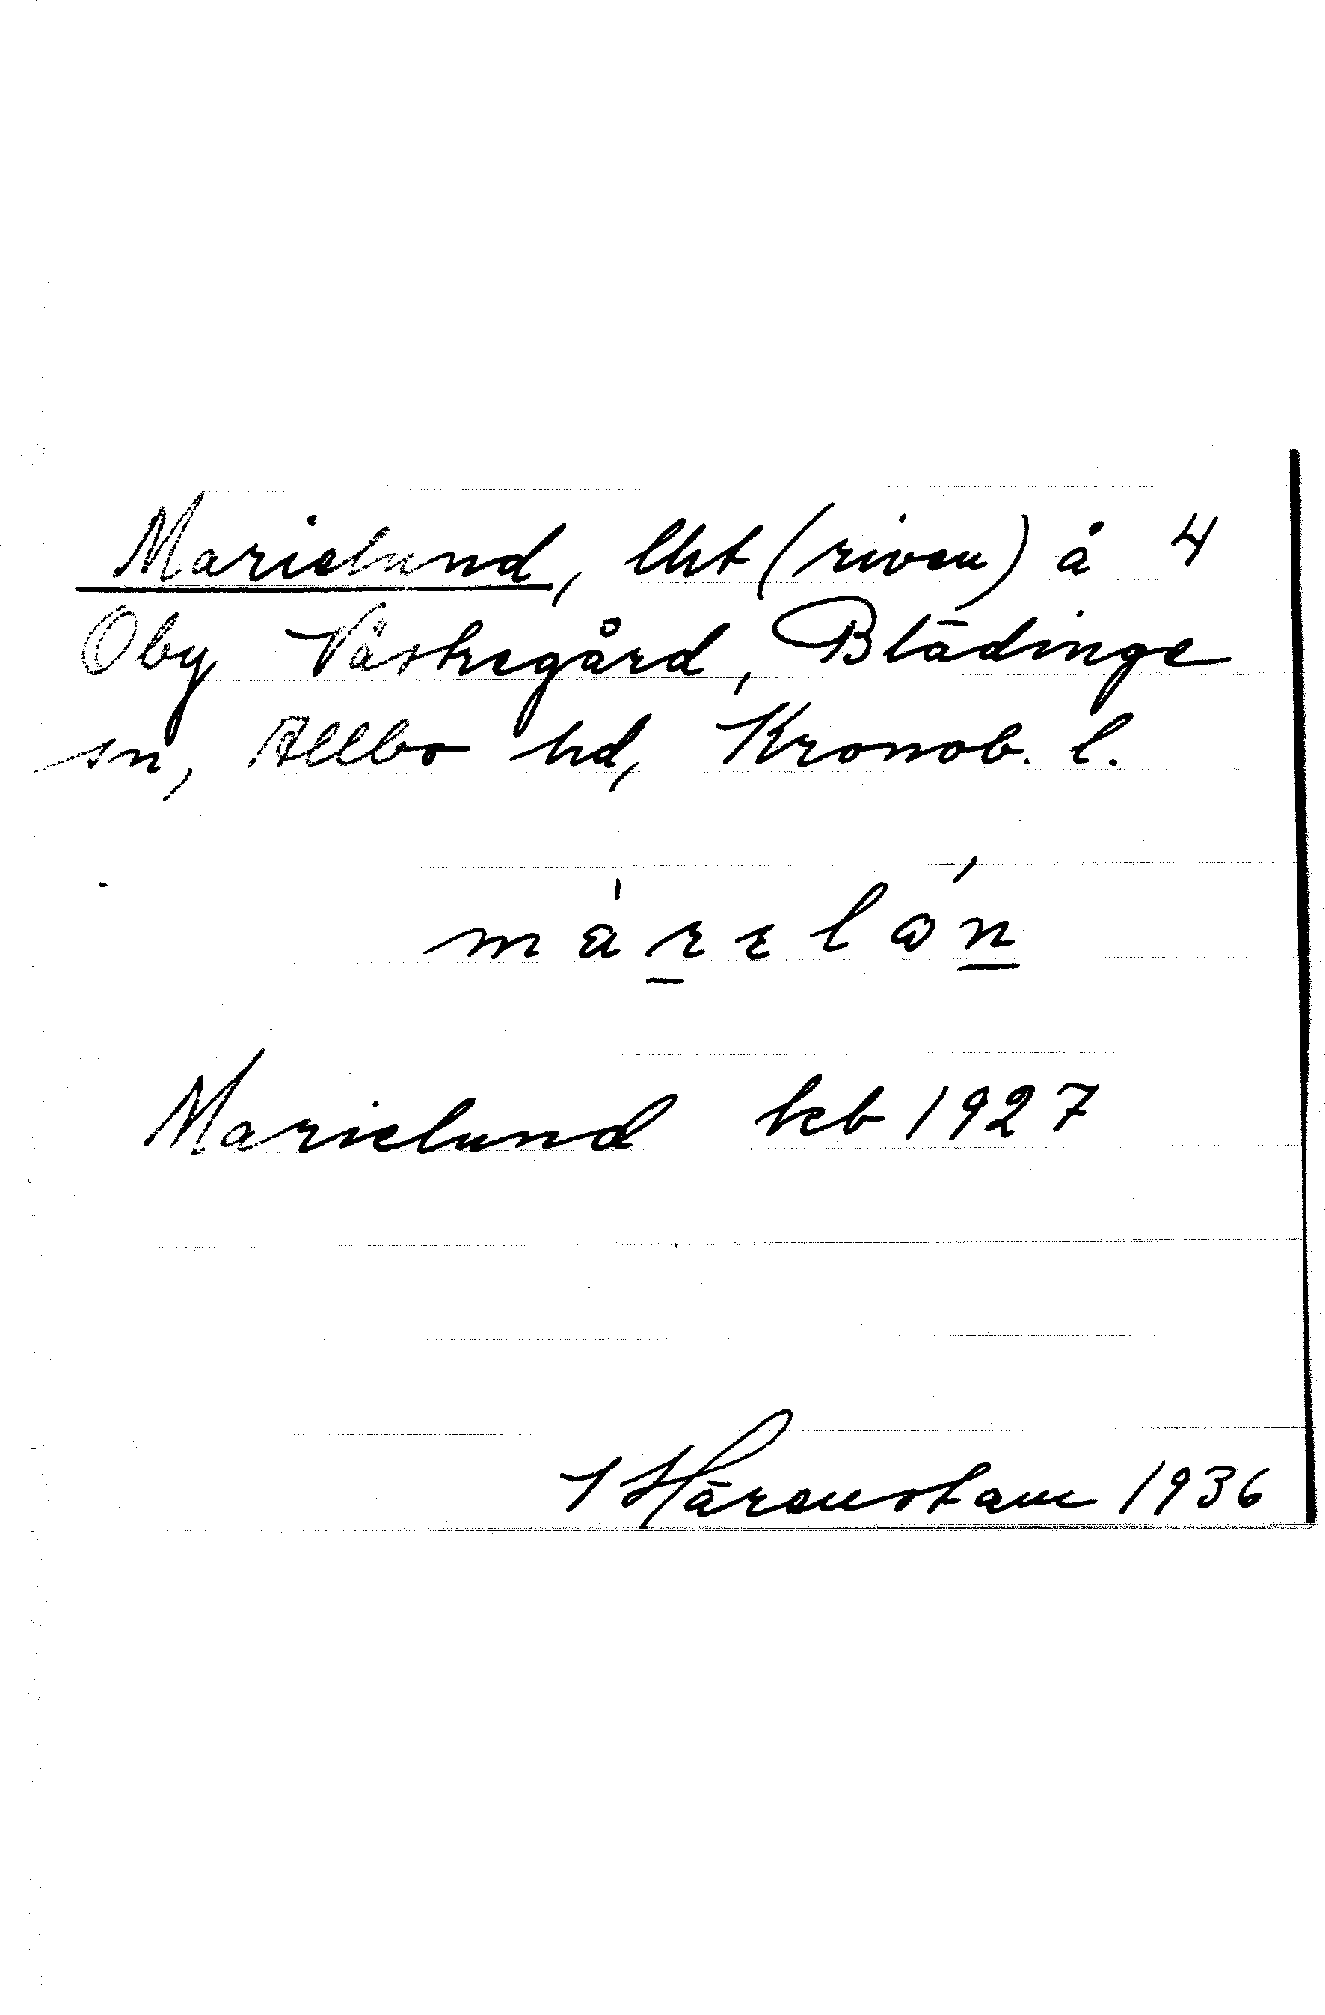 Marielund, lht (riven) å 4
Oby Västregård, Blädinge
sn, Allbo hd, Kronob. l.
Marielund keb 1927
Härenstam 1936